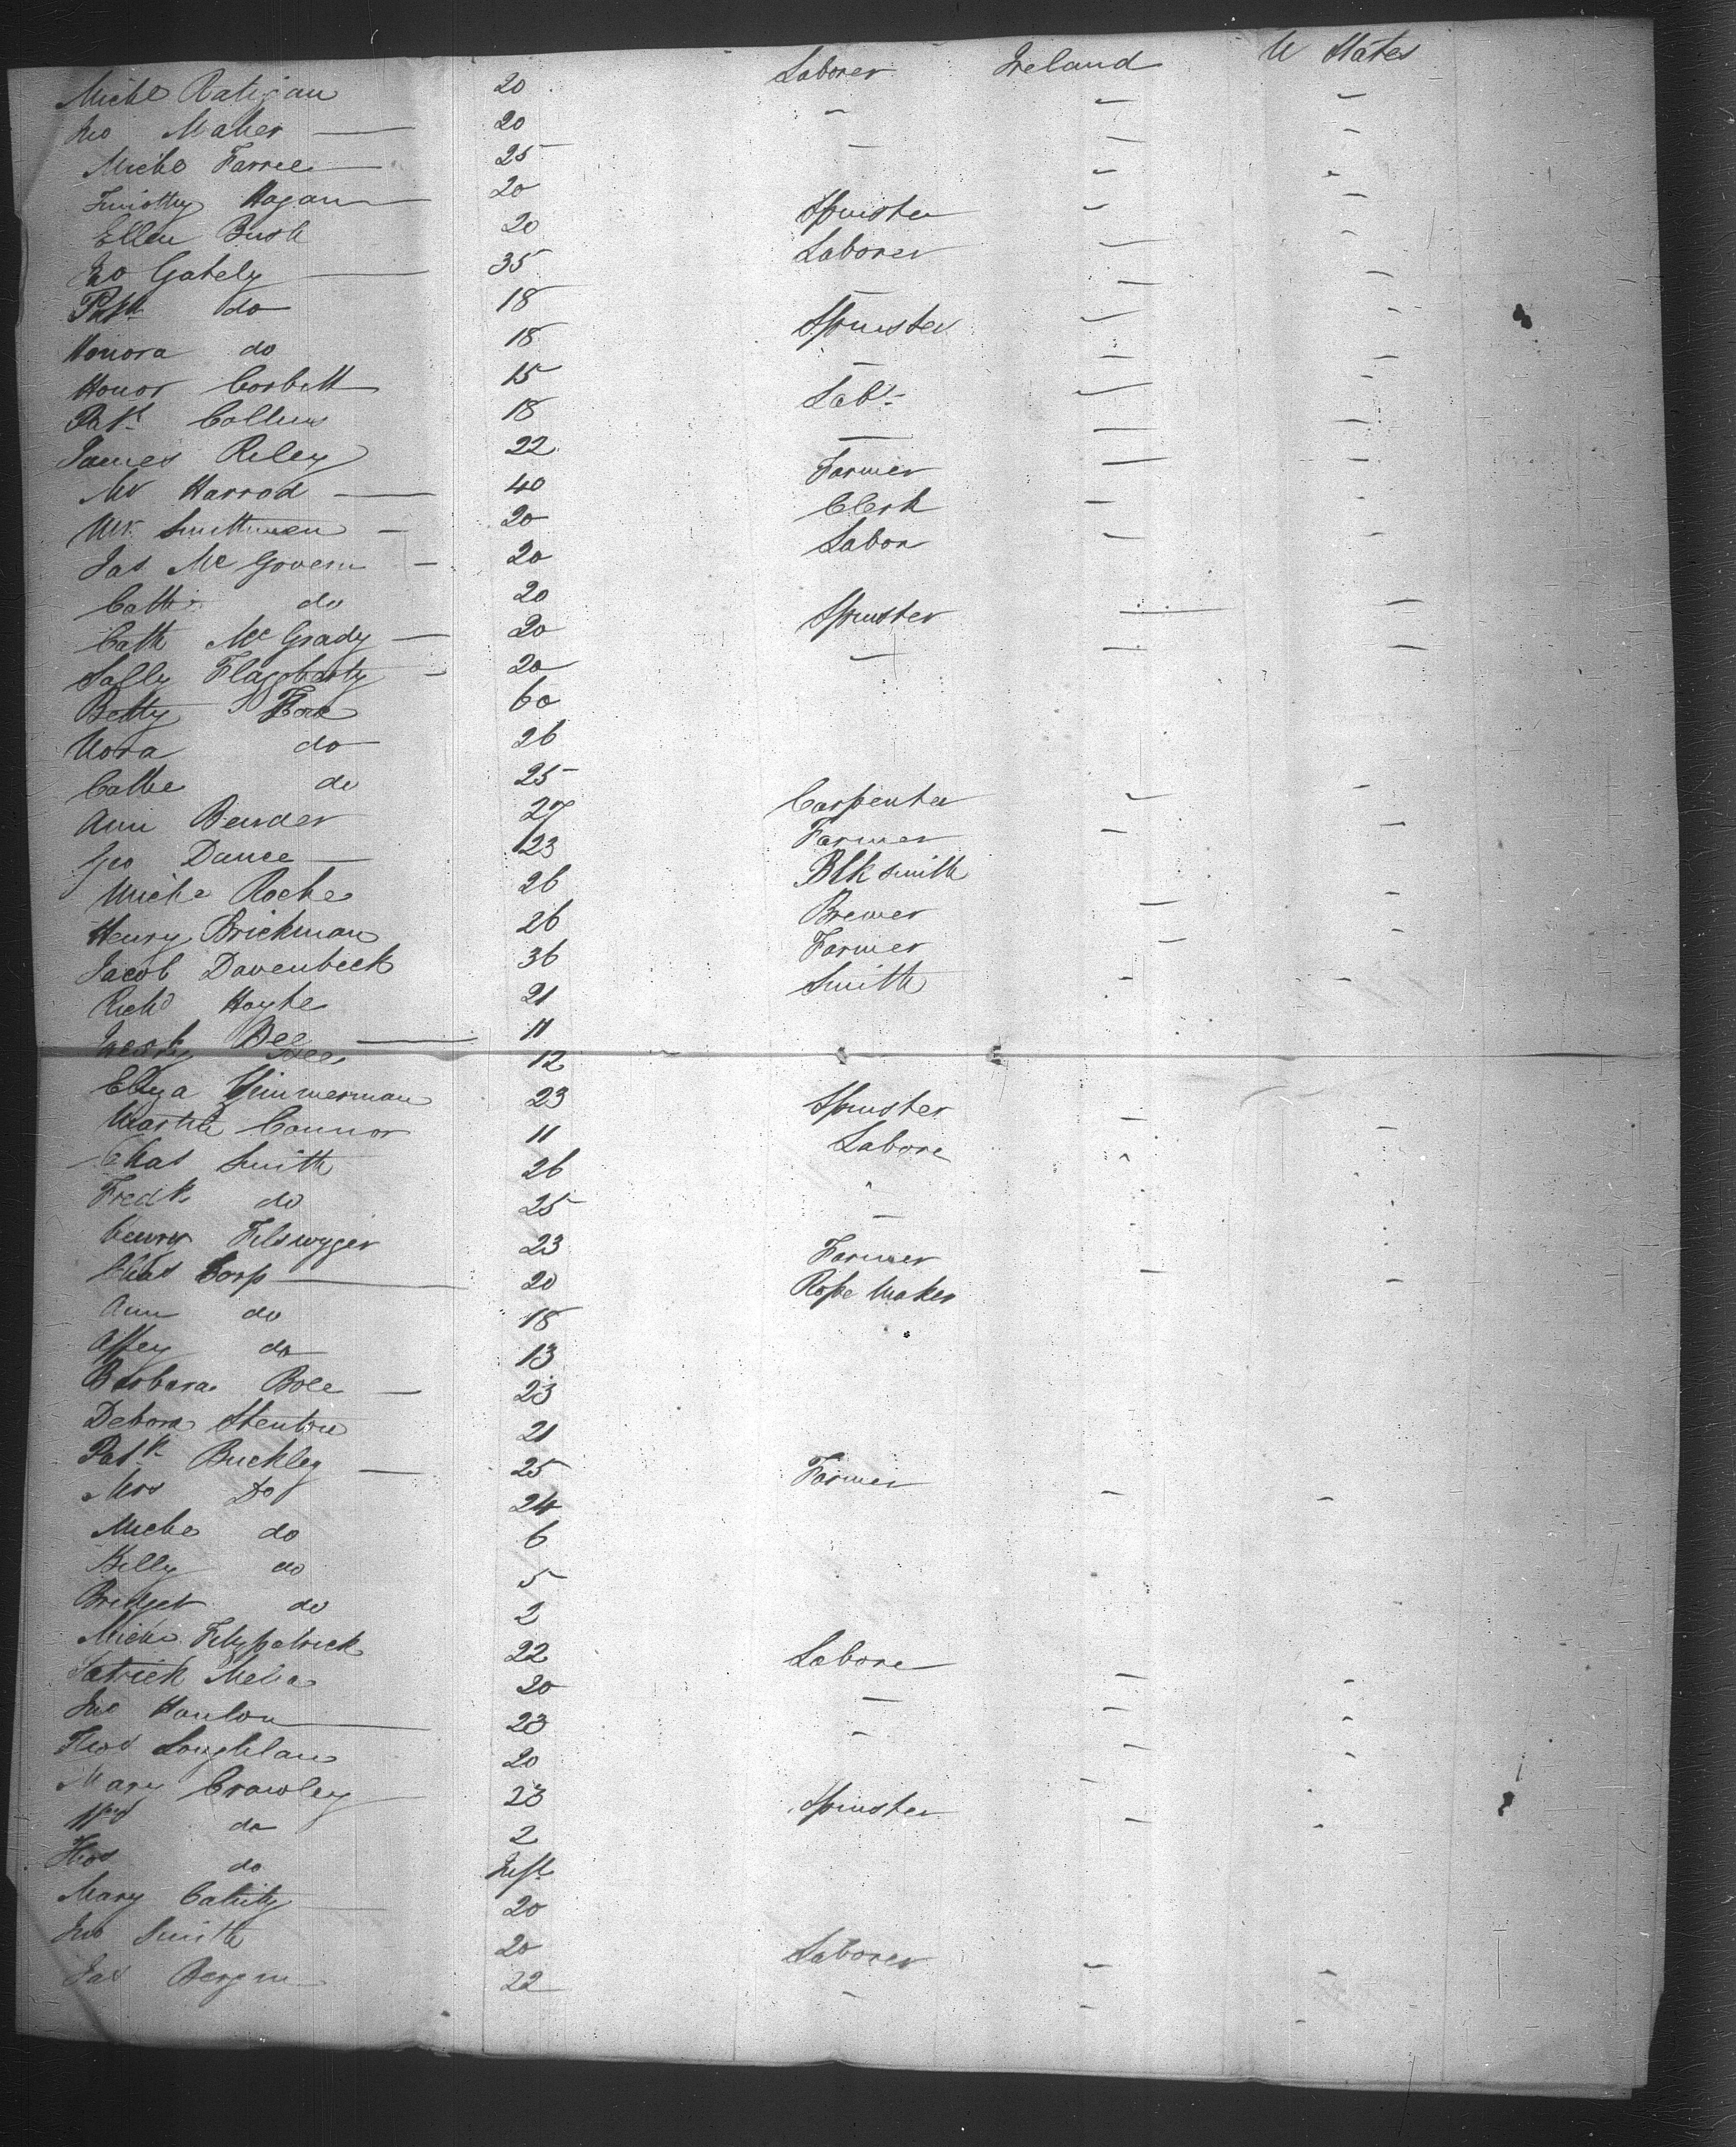 Michl Ratigan 20 Laborer Ireland U States
Jno Maher — 20 — — —
Michl Farrel — 25 — — —
Timothy Hagan — 20 — —
Ellen Bush 20 Spinster — —
Jno Gately — 35 Laborer — —
Patk do 18 — — —
Honora do 18 Spinster —
Honor Corbett 15 — — —
Patk Collins 18 Labr — —
James Riley 22 — — —
Mr Harrod — 40 Farmer — —
Mr Smithman — 20 Clerk — —
Jas McGovern — 20 Labor — —
Cath do 20
Cath McGrady — 20 Spinster — —
Sally Flaggherty — 20 — — —
Betty 60
Nora do 26
Cathe do 25
Ann Bender 27 Carpenter — —
Geo Dance — 23 Farmer — —
Michl Roche 26 Blk smith
Henry Brickman 26 Brewer — —
Jacob Davenbeck 36 Farmer — —
Richd Hoyle 21 Smith — —
Bee — 11
Bee 12
Eliza Zimmerman 23 Spinster — —
Martin Connor 11 Labore
Chas Smith 26
Fredk do 25 —
Henry 23 Farmer
Chas Corp — 20 Rope Maker — —
Ann do 18
Affey do 13
Barbara Boll — 23
Debora Stenton 21
Patk Buckley — 25 Farmer
Mrs Do 24 — —
Michl do 6
Billy do 5
Bridget do 2
Michl Fitzpatrick 22 Labore
Patrick Melia 20 — — —
Jno Hanlon — 23 — — —
Thos Loughlan 20 — —
Mary Crawley 23 Spinster —
do 2 — —
Thos do Inft
Mary — 20
Jno Smith 20 Laborer
Jas Bergin 22 — — —